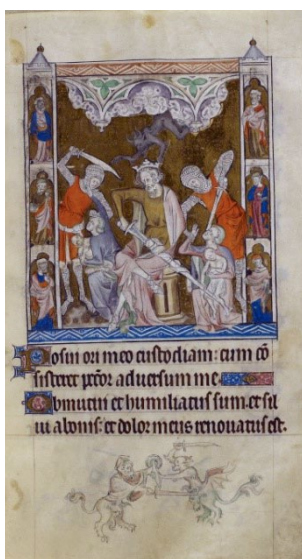 Posui ori meo custodiam: cum cō
sisteret pctōr aduersum me.
Obmutui et humiliatus sum. et sil
ui a bonis: et dolor meus renouatus est.